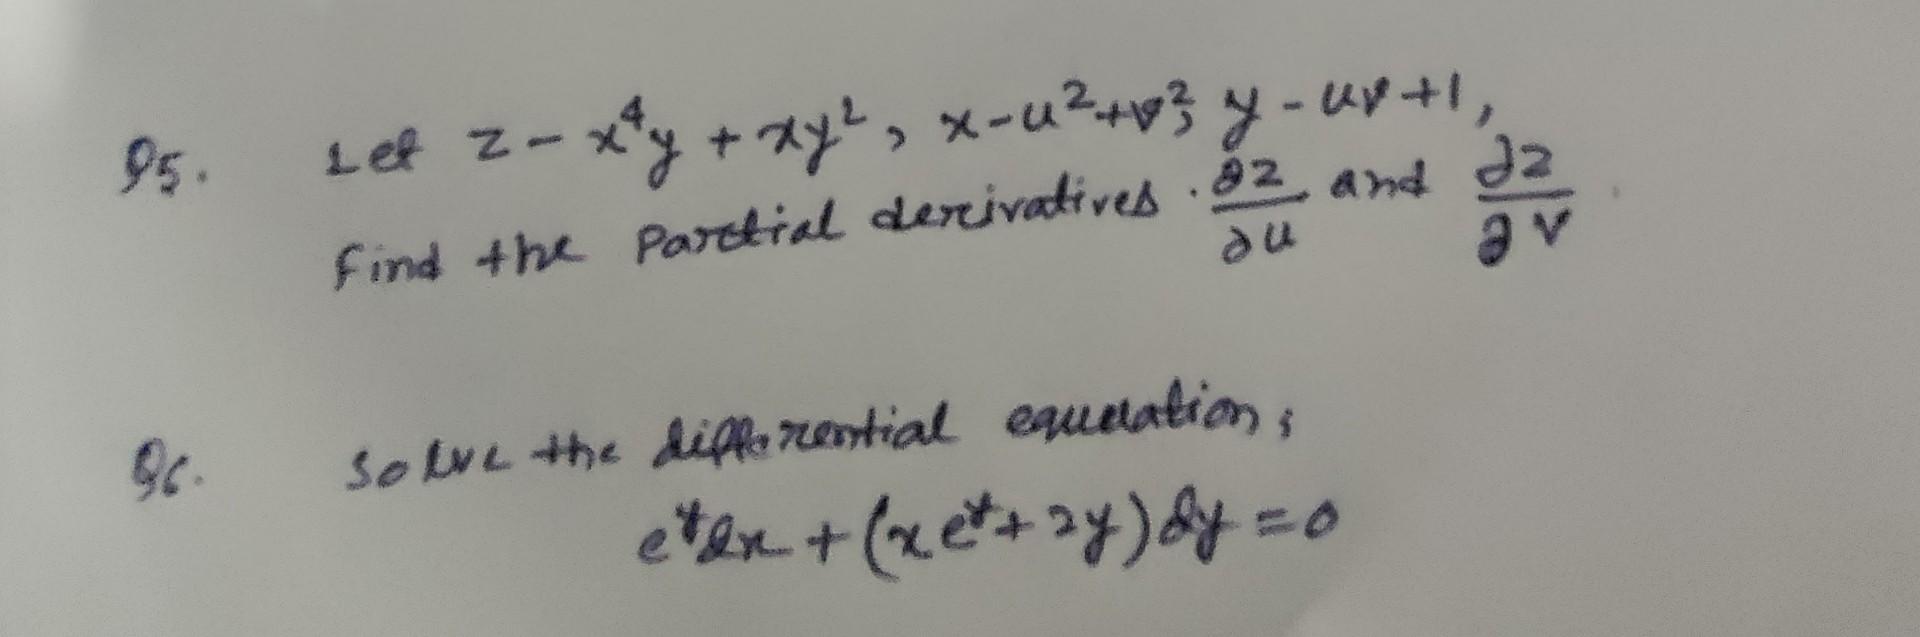 Q5. Let z - x⁴y + xy², x - u² + v², y - uv + 1,
find the Partial derivatives . ∂z/∂u and ∂z/∂v .
Q6. Solve the differential equation;
eʸdx + (xeʸ + 2y)dy = 0